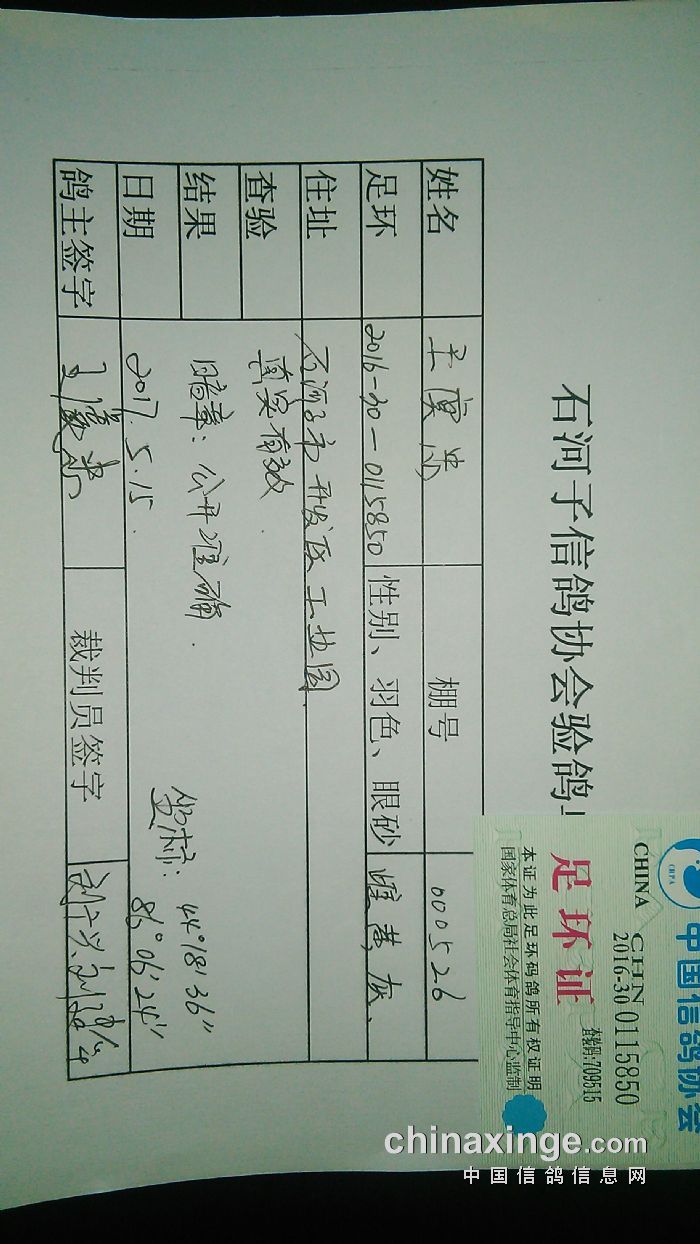 石河子信鸽协会验鸽
姓名 棚号 000526
足环 2016-30-0115850 性别、羽色、眼砂 雌 黄 灰、
住址 石河子市开发区工业园.
查验结果 真实有效.
暗章：公开准确.
坐标：44°18'36"
86°06'24"
日期 2017.5.15.
鸽主签字 裁判员签字
中国信鸽协会
CHINA CHN
2016-30 0115850
本激码:709515
足环证
本证为此足环码鸽所有权证明
国家体育总局社会体育指导中心监制
chinaxinge.com
中国信鸽信息网